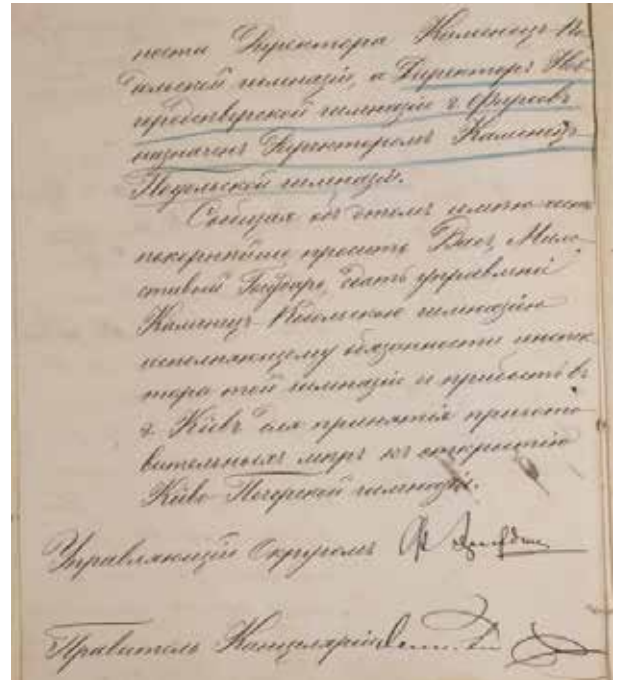 ности Директора Каменец-По-
дольской гимназіи, а Директоръ Нов-
городсѣверской гимназіи г.
назначенъ Директоромъ Каменецъ
Подольской гимназіи.
Сообщая объ этомъ имѣю честь
покорнѣйше просить Васъ, Мило-
стивый Государь, сдать управленіе
Каменецъ-Подольскою гимназіею
исполняющему обязанности инспек
тора той гимназіи и прибыть въ
г. Кіевъ для принятія пригото-
вительныхъ мѣръ къ открытію
Кіево-Печерской гимназіи.
Управляющій Округомъ
Правитель Канцеляріи